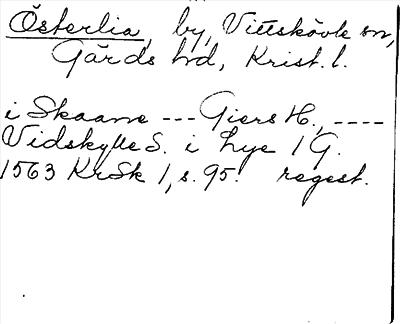 Österlia, by, Vittskövle sn,
Gärds hd, Krist. l.
i Skaane --- Giers H., ----
Vidskylle S. i Lye 1 G.
1563 KrSk 1, s. 95. regest.